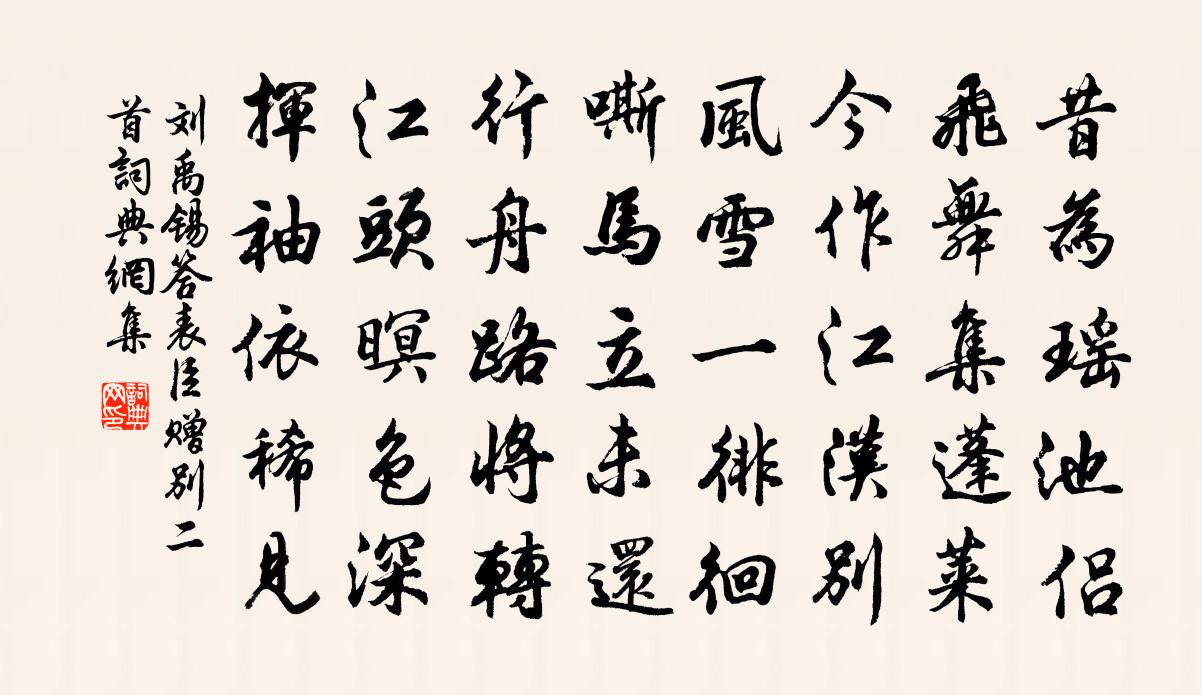 昔為瑶池侣
飛舞集蓬萊
今作江漢別
風雪一徘徊
嘶馬立未還
行舟路將轉
江頭暝色深
揮袖依稀見
刘禹锡答表臣赠别二
首詞典網集
詞典
网印